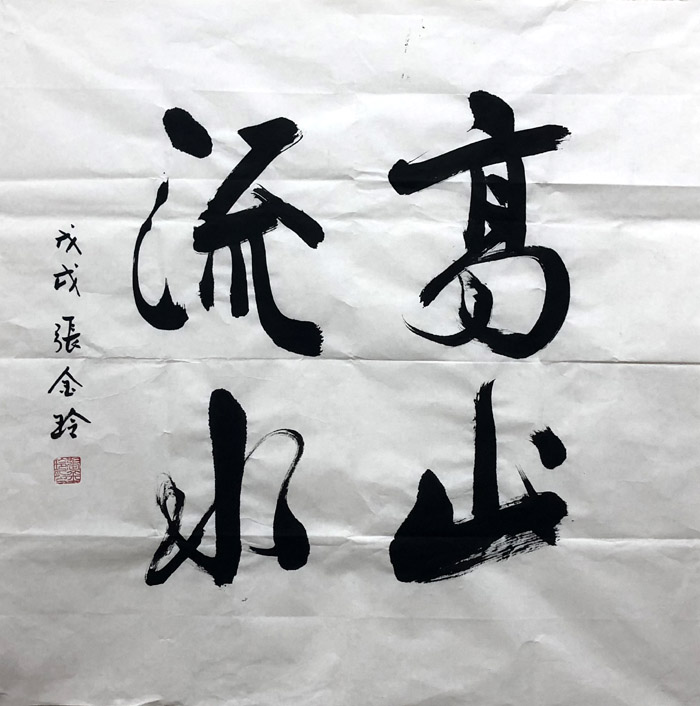 高山
流水
戊戌 張金玲